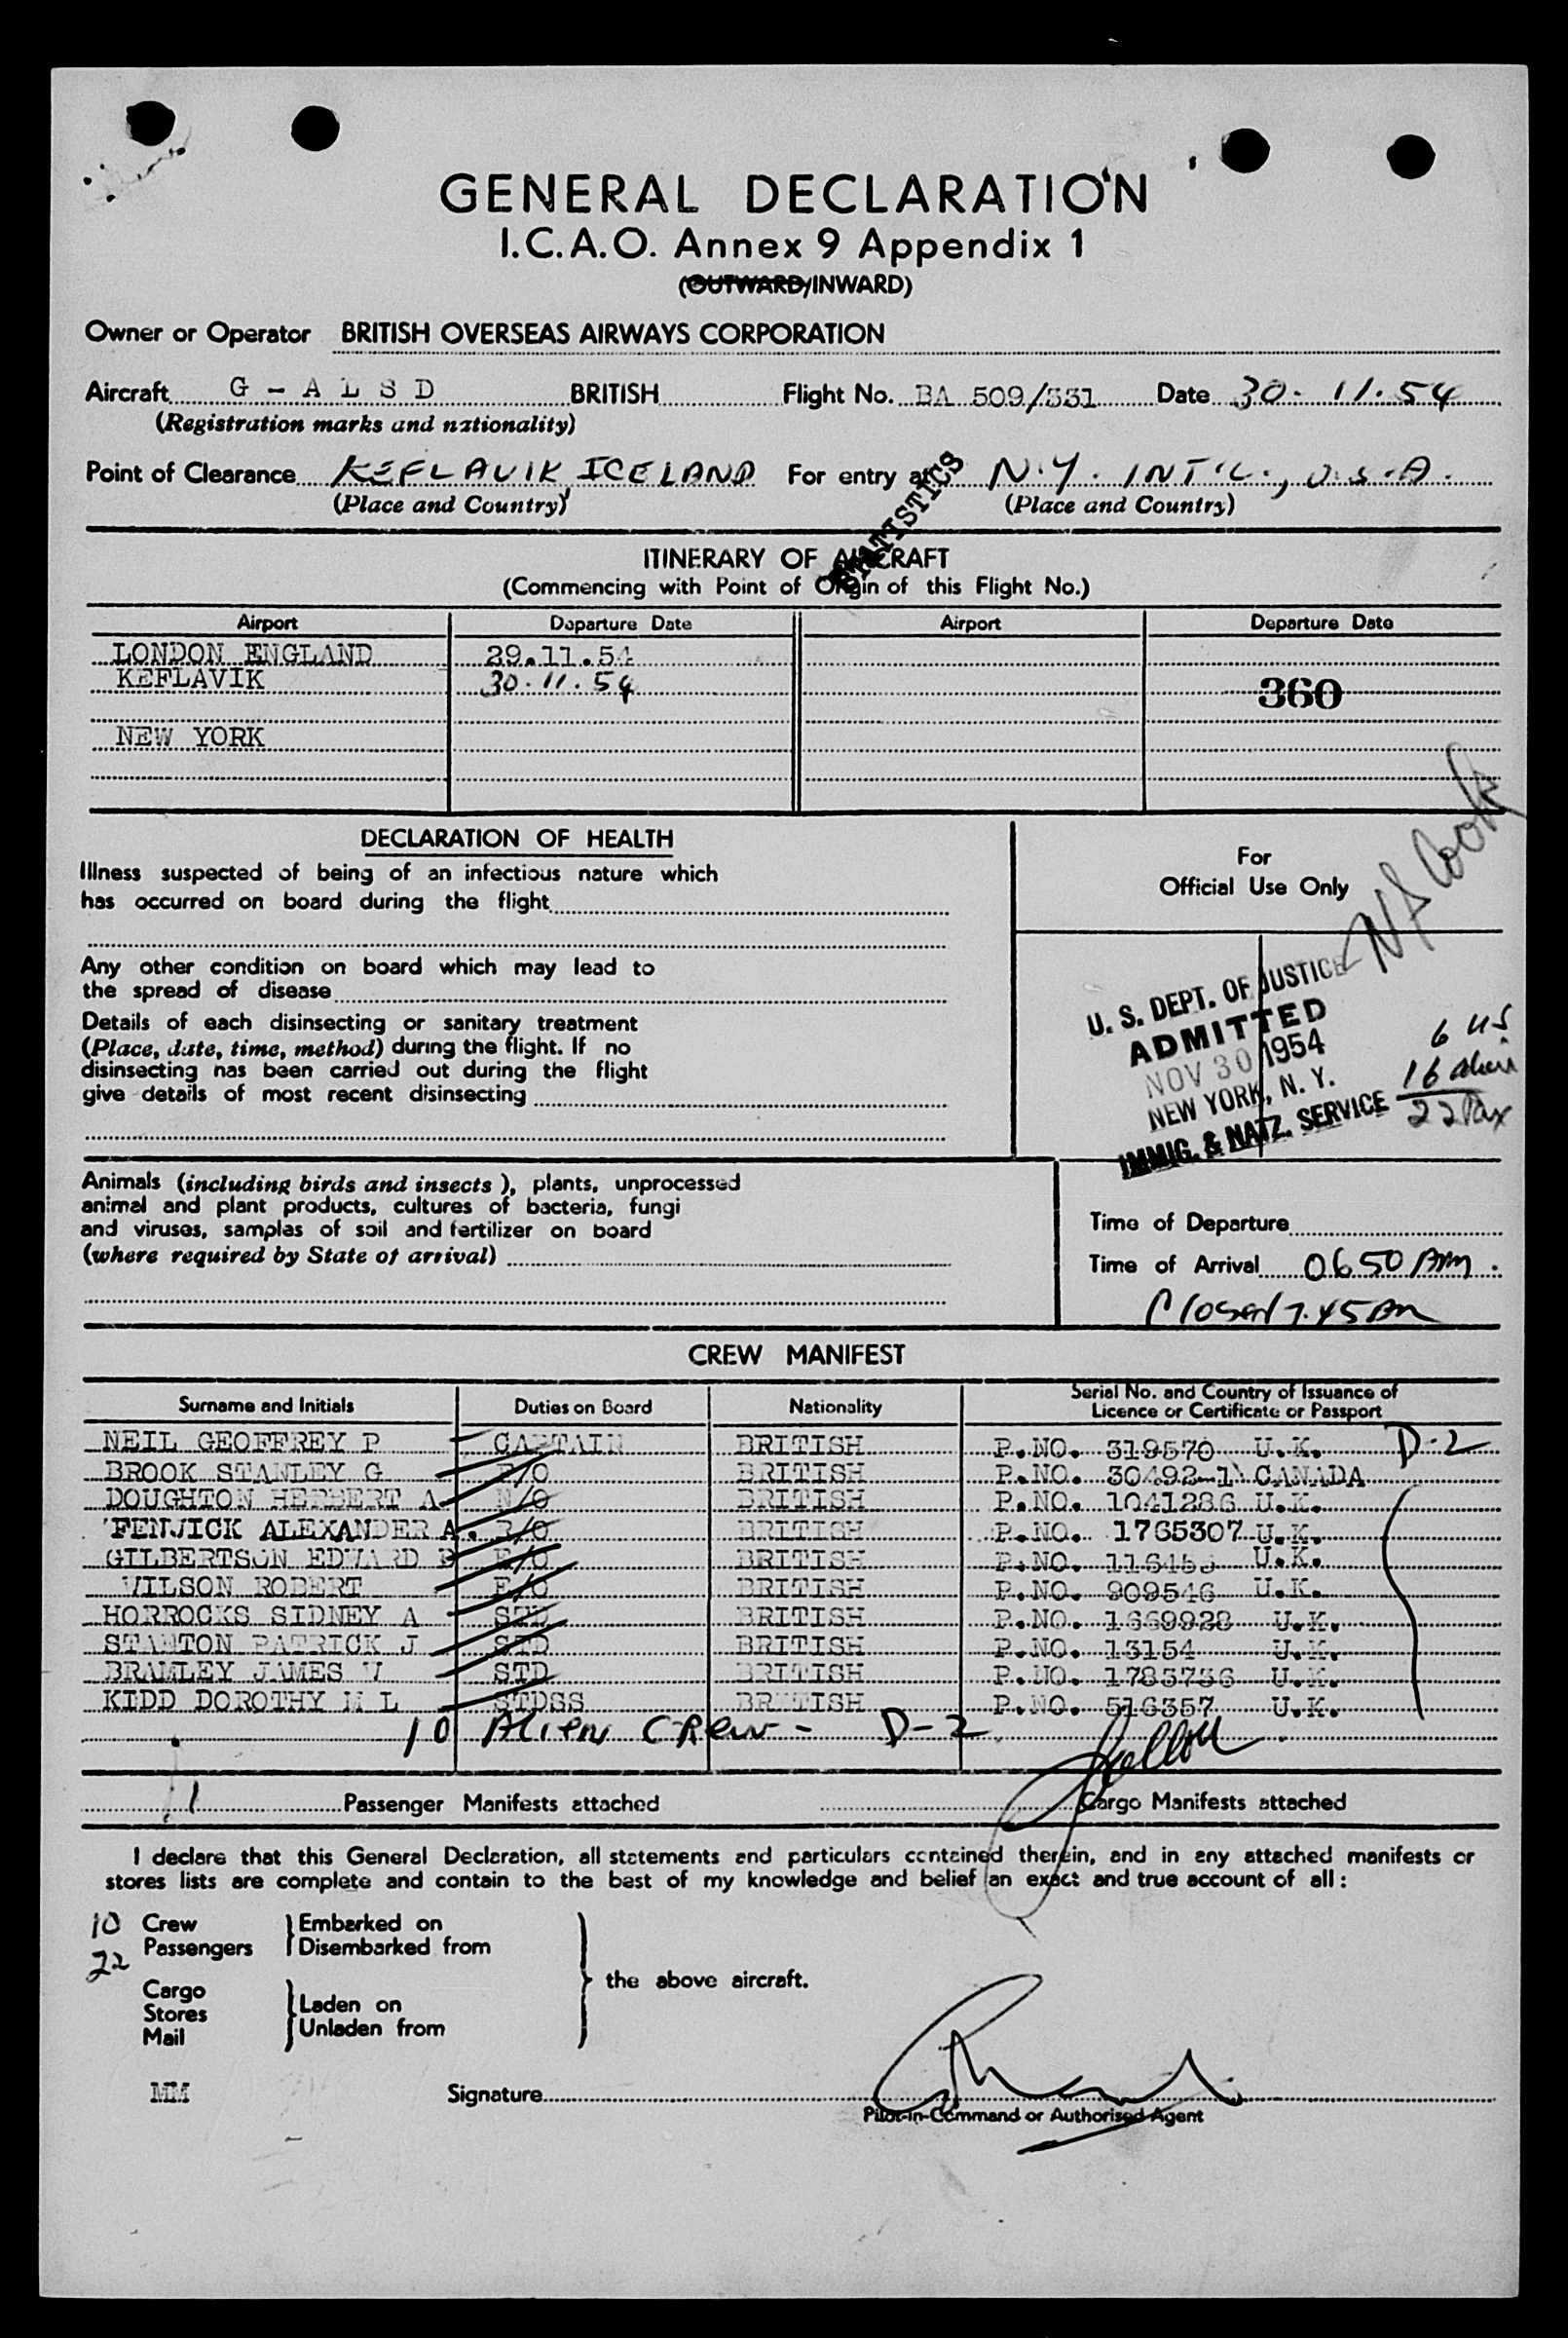 GENERAL DECLARATION
I.C.A.O. Annex 9 Appendix 1
(OUTWARD/INWARD)
Owner or Operator BRITISH OVERSEAS AIRWAYS CORPORATION
Aircraft G - A L S D BRITISH Flight No. BA 509/531 Date 30. 11. 54
(Registration marks and nationality)
Point of Clearance KEFLAVIK, ICELAND For entry at N.Y. INT'L., U.S.A.
(Place and Country) (Place and Country)
STATISTICS
ITINERARY OF AIRCRAFT
(Commencing with Point of Origin of this Flight No.)
Airport Departure Date Airport Departure Date
LONDON ENGLAND 29.11.54
KEFLAVIK 30.11.54
360
NEW YORK
DECLARATION OF HEALTH
Illness suspected of being of an infectious nature which
has occurred on board during the flight
Any other condition on board which may lead to
the spread of disease
Details of each disinsecting or sanitary treatment
(Place, date, time, method) during the flight. If no
disinsecting has been carried out during the flight
give details of most recent disinsecting
For
Official Use Only
U. S. DEPT. OF JUSTICE
ADMITTED
NOV 30 1954
NEW YORK, N. Y.
IMMIG. & NATZ. SERVICE
6 US
16
22
Animals (including birds and insects), plants, unprocessed
animal and plant products, cultures of bacteria, fungi
and viruses, samples of soil and fertilizer on board
(where required by State of arrival)
Time of Departure
Time of Arrival 0650 Am.
Closed 7.45 Am
CREW MANIFEST
Surname and Initials Duties on Board Nationality Serial No. and Country of Issuance of Licence or Certificate or Passport
NEIL GEOFFREY P CAPTAIN BRITISH P.NO. 319570 U.K. D-2
BROOK STANLEY G F/O BRITISH P.NO. 30492-1 CANADA
DOUGHTON HERBERT A N/O BRITISH P.NO. 1041286 U.K.
FENWICK ALEXANDER A. R/O BRITISH P.NO. 1765307 U.K.
GILBERTSON EDWARD E/O BRITISH P.NO. U.K.
WILSON ROBERT E/O BRITISH P.NO. 909546 U.K.
HORROCKS SIDNEY A STD BRITISH P.NO. 1669928 U.K.
STANTON PATRICK J STD BRITISH P.NO. 13154 U.K.
BRAMLEY JAMES W STD BRITISH P.NO. 1783736 U.K.
KIDD DOROTHY M L STDSS BRITISH P.NO. 516357 U.K.
10 Alien Crew - D-2
1 Passenger Manifests attached Cargo Manifests attached
I declare that this General Declaration, all statements and particulars contained therein, and in any attached manifests or
stores lists are complete and contain to the best of my knowledge and belief an exact and true account of all :
10 Crew Embarked on
22 Passengers Disembarked from
the above aircraft.
Cargo
Stores Laden on
Mail Unladen from
MM Signature
Pilot-in-Command or Authorised Agent